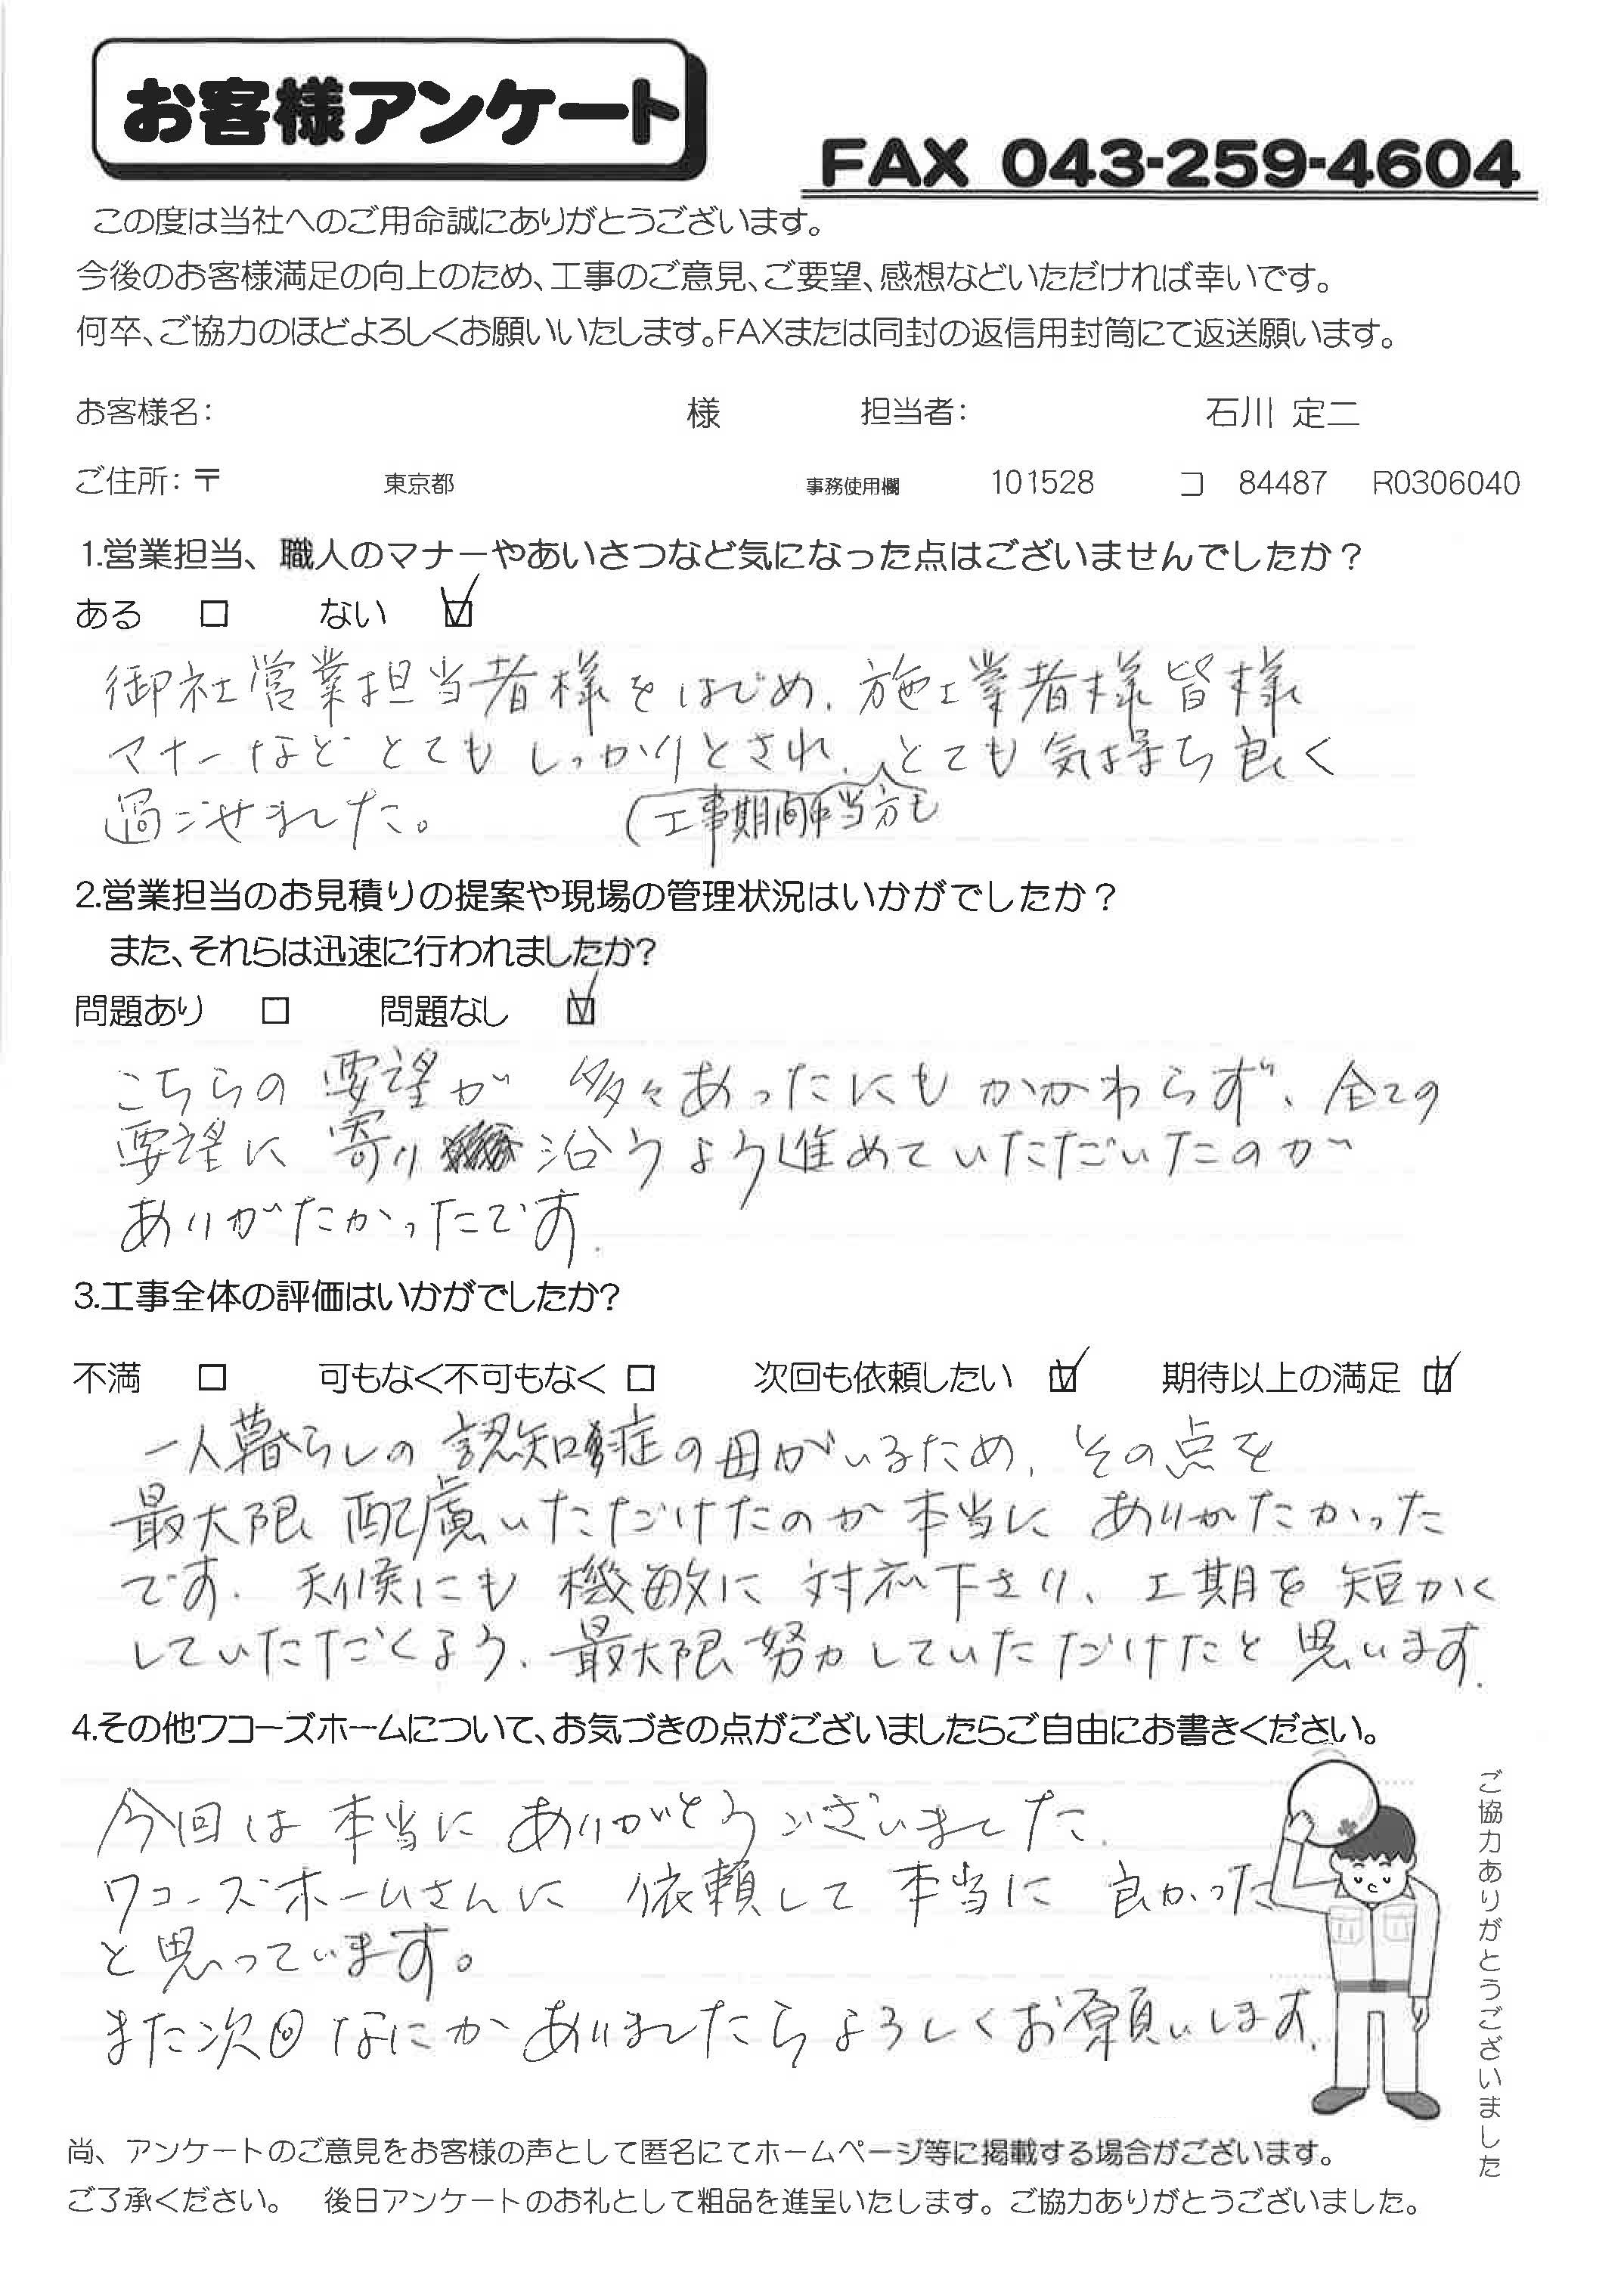 お客様アンケート
FAX 043-259-4604
この度は当社へのご用命誠にありがとうございます。
今後のお客様満足の向上のため、工事のご意見、ご要望、感想などいただければ幸いです。
何卒、ご協力のほどよろしくお願いいたします。FAXまたは同封の返信用封筒にて返送願います。
お客様名: 様 担当者: 石川 定二
ご住所: 〒 東京都 事務使用欄 101528 コ 84487 R0306040
1.営業担当、職人のマナーやあいさつなど気になった点はございませんでしたか？
ある □ ない ☑
御社営業担当者様をはじめ、施工業者様皆様
マナーなどとてもしっかりとされ、とても気持ち良く
過ごせました。 (工事期間中当方も
2.営業担当のお見積りの提案や現場の管理状況はいかがでしたか？
また、それらは迅速に行われましたか?
問題あり □ 問題なし ☑
こちらの要望が多々あったにもかかわらず、全ての
要望に寄り沿うよう進めていただいたのが
ありがたかったです.
3.工事全体の評価はいかがでしたか?
不満 □ 可もなく不可もなく □ 次回も依頼したい ☑ 期待以上の満足 ☑
一人暮らしの認知症の母がいるため、その点を
最大限配慮いただけたのが本当にありがたかった
です. 天候にも機敏に対応下さり、工期を短かく
していただくよう、最大限努力していただけたと思います.
4.その他ワコーズホームについて、お気づきの点がございましたらご自由にお書きください。
今回は本当にありがとうございました.
ワコーズホームさんに依頼して本当に良かった
と思っています。
また次回なにかありましたらよろしくお願いします.
ご協力ありがとうございました
尚、アンケートのご意見をお客様の声として匿名にてホームページ等に掲載する場合がございます。
ご了承ください。 後日アンケートのお礼として粗品を進呈いたします。ご協力ありがとうございました。